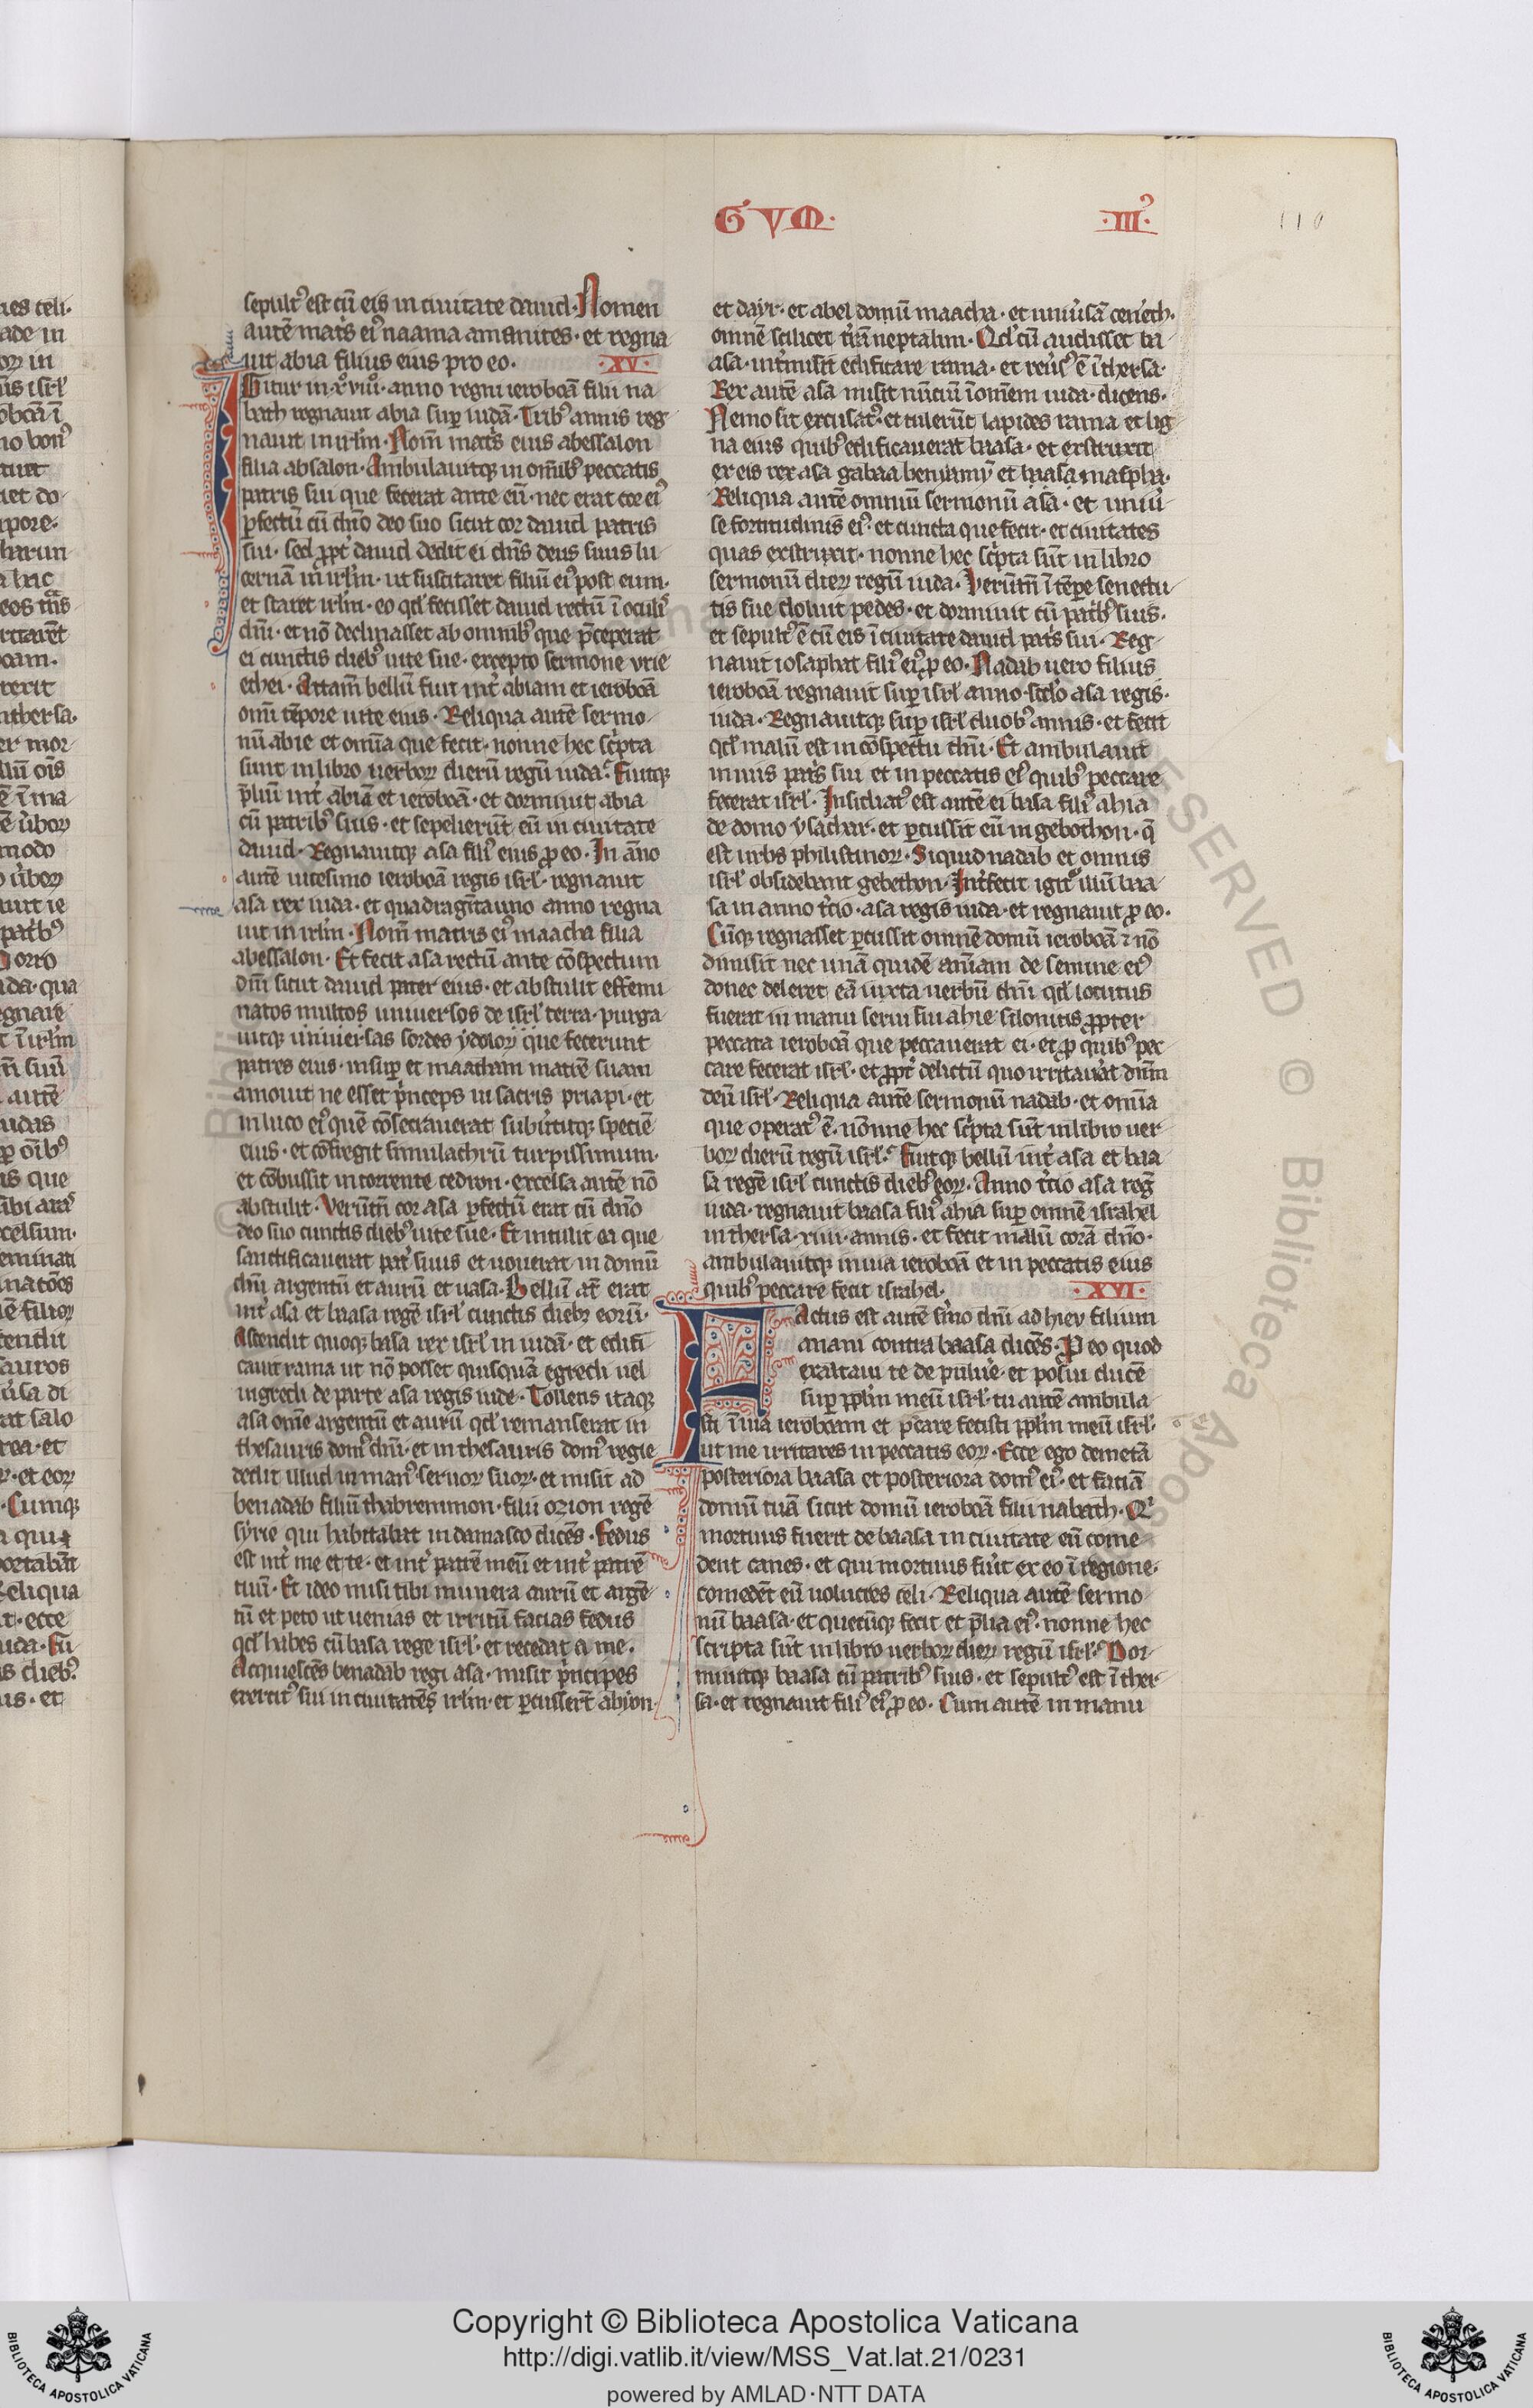 GVM· ·III·
110
sepultꝰ est cū eis in ciuitate dauid· Nomen
autē mat̉s eiꝰ naama amanites· et regna
uit abia filius eius pro eo· ·XV·
IGitur in·xͦ·viiͦiͦ· anno regni ieroboā filii na
bath regnauit abia suꝑ iudā· Tribꝰ annis reg
nauit in irl̄m· Nom̄ mat̉s eius abessalon
filia absalon· Ambulauitqꝫ in om̄ibꝰ peccatis
patris sui que fecerat ante eū· nec erat cor eiꝰ
ꝑfectū cū dn̄o deo suo sicut cor dauid patris
sui· sed ꝓpt̉ dauid dedit ei dn̄s deus suus lu
cernā in irl̄m· ut suscitaret filiū eiꝰ post eum·
et staret irl̄m· eo qd̓ fecisset dauid rectū ī oculis
dn̄i· et nō declinasset ab omnibꝰ que p̄ceperat
ei cunctis diebꝰ uite sue· excepto sermone vrie
ethei· Attam̄ bellū fuit int̉ abiam et ieroboā
om̄i tēpore uite eius· Reliqua autē sermo
nū abie et om̄ia que fecit· nonne hec sc̉pta
sunt in libro uerboꝝ dierū regū iuda· Fuitqꝫ
p̄liū int̉ abiā et ieroboā· et dormiuit abia
cū patribꝰ suis· et sepelierūt eū in ciuitate
dauid· Regnauitqꝫ asa filiꝰ eius ꝓ eo· In āno
autē uicesimo ieroboā regis isrl̓· regnauit
asa rex iuda· et quadragīta uno anno regna
uit in irl̄m· Nom̄ matris eiꝰ maacha filia
abessalon· Et fecit asa rectū ante cōspectum
dn̄i sicut dauid pater eius· et abstulit effemi
natos multos uniuersos de isrl̓ terra· purga
uitqꝫ uniuersas sordes ydoloꝝ que fecerunt
patres eius· insuꝑ et maacham matrē suam
amouit ne esset p̉nceps in sacris priapi· et
in luco eiꝰ quē cōsecrauerat subu̓titqꝫ speciē
eius· et cōfregit simulachrū turpissimum·
et cōbussit in torrente cedron· excelsa autē nō
abstulit· Verūtn̄ cor asa ꝑfectū erat cū dn̄o
deo suo cunctis diebꝰ uite sue· Et intulit ea que
sanctificauerat pat̉ suus et uouerat in domū
dn̄i argentū et aurū et uasa· Bellū aūt erat
int̉ asa et baasa regē isrl̓ cunctis diebꝫ eorū·
Ascendit quoqꝫ basa rex isrl̓ in iudā· et edifi
cauit rama ut nō posset quisquā egredi uel
ingredi de parte asa regis iude· Tollens itaqꝫ
asa om̄e argentū et aurū qd̓ remanserat in
thesauris domꝰ dn̄i· et in thesauris domꝰ regie
dedit illud in manꝰ seruoꝝ suoꝝ· et misit ad
benadab filiū thabremmon· filii ozion regē
syrie qui habitabat in damasco dicēs· Fedus
est int̉ me et te· et int̉ patrē meū et int̉ patrē
tuū· Et ideo misi tibi munera aurū et argē
tū et peto ut uenias et irritū facias fedus
qd̓ habes cū basa rege isrl̓· et recedat a me·
Acquiescēs benadab regi asa· misit p̉ncipes
exercitꝰ sui in ciuitates irl̄m· et ꝑcusserūt abyon·
et dayr· et abel domū maacha· et uniu̓sā cenereth·
omnē scilicet t̉rā neptalim· Qd̓ cū audisset ba
asa· int̉misit edificare rama· et reu̓sꝰ ē ī thersa·
Rex autē asa misit nūciū ī om̄em iuda· dicens·
Nemo sit excusatꝰ· et tulerūt lapides rama et lig
na eius quibꝰ edificauerat baasa· et exstruxit
ex eis rex asa gabaa benyamȳ et baasa maspha·
Reliqua autē omniū sermonū asa· et uniu̓
se fortitudinis eiꝰ· et cuncta que fecit· et ciuitates
quas exstruxit· nonne hec sc̉pta sūt in libro
sermonū dieꝝ regū iuda· Verūtn̄ ī tēpe senectu
tis sue doluit pedes· et dormiuit cū pat̉bꝰ suis·
et sepultꝰ ē cū eis ī ciuitate dauid pat̉s sui· Reg
nauit iosaphat filiꝰ eiꝰ ꝓ eo· Nadab uero filius
ieroboā regnauit suꝑ isrl̓ anno sēdo asa regis·
iuda· Regnauitqꝫ suꝑ isrl̓ duobꝰ annis· et fecit
qd̓ malū est in cōspectu dn̄i· Et ambulauit
in uiis pat̉s sui et in peccatis eiꝰ quibꝰ peccare
fecerat isrl̓· Insidiatꝰ est autē ei basa filiꝰ ahia
de domo ysachar· et ꝑcussit eū in gebothon· q̄
est urbs philistinoꝝ· Siquid nadab et omnis
isrl̓ obsidebant gebethon· Int̉fecit igit᷑ illū baa
sa in anno t̉cio· asa regis iuda· et regnauit ꝓ eo·
Cūqꝫ regnasset ꝑcussit omnē domū ieroboā ⁊ nō
dimisit nec unā quidē aīam de semine eiꝰ
donec deleret eā iuxta uerbū dn̄i qd̓ locutus
fuerat in manu serui sui ahie silonitis ꝓpter
peccata ieroboā que peccauerat ei· et ꝓ quibꝰ pec
care fecerat isrl̓· et ꝓpt̉ delictū quo irritau̓at dn̄m
deū isrl̓· Reliqua autē sermonū nadab· et om̄ia
que operatꝰ ē· nōnne hec sc̉pta sūt in libro uer
boꝝ dierū regū isrl̓· Fuitqꝫ bellū int̉ asa et baa
sa regē isrl̓ cunctis diebꝰ eoꝝ· Anno t̉cio asa reg̓
iuda· regnauit baasa filiꝰ ahia suꝑ omnē israhel
in thersa· xxiiii· annis· et fecit malū corā dn̄o·
ambulauitqꝫ in uia ieroboā et in peccatis eius
quibꝰ peccare fecit israhel· ·XVI·
FActus est autē s̉mo dn̄i ad hiev filium
anani contra baasa dicēs· P̄ eo quod
exaltaui te de puluē· et posui ducē
suꝑ ppl̄m meū isrl̓· tu autē ambula
sti ī uia ieroboam et p̄care fecisti ppl̄m meū isrl̓·
ut me irritares in peccatis eoꝝ· Ecce ego demetā
posteriora baasa et posteriora domꝰ eiꝰ· et faciā
domū tuā sicut domū ieroboā filii nabath· Qi
mortuus fuerit de baasa in ciuitate eū come
dent canes· et qui mortuus fu̓it ex eo ī regione·
comedēt eū uolucres celi· Reliqua autē sermo
nū baasa· et quecūqꝫ fecit et p̄lia eiꝰ· nonne hec
scripta sūt in libro uerboꝝ dieꝝ regū isrl̓· Dor
miuitqꝫ baasa cū patribꝰ suis· et sepultꝰ est ī ther
sa· et regnauit filiꝰ eiꝰ ꝓ eo· Cum autē in manu
Copyright © Biblioteca Apostolica Vaticana
http://digi.vatlib.it/view/MSS_Vat.lat.21/0231
powered by AMLAD·NTT DATA
BIBLIOTECA APOSTOLICA VATICANA
BIBLIOTECA APOSTOLICA VATICANA